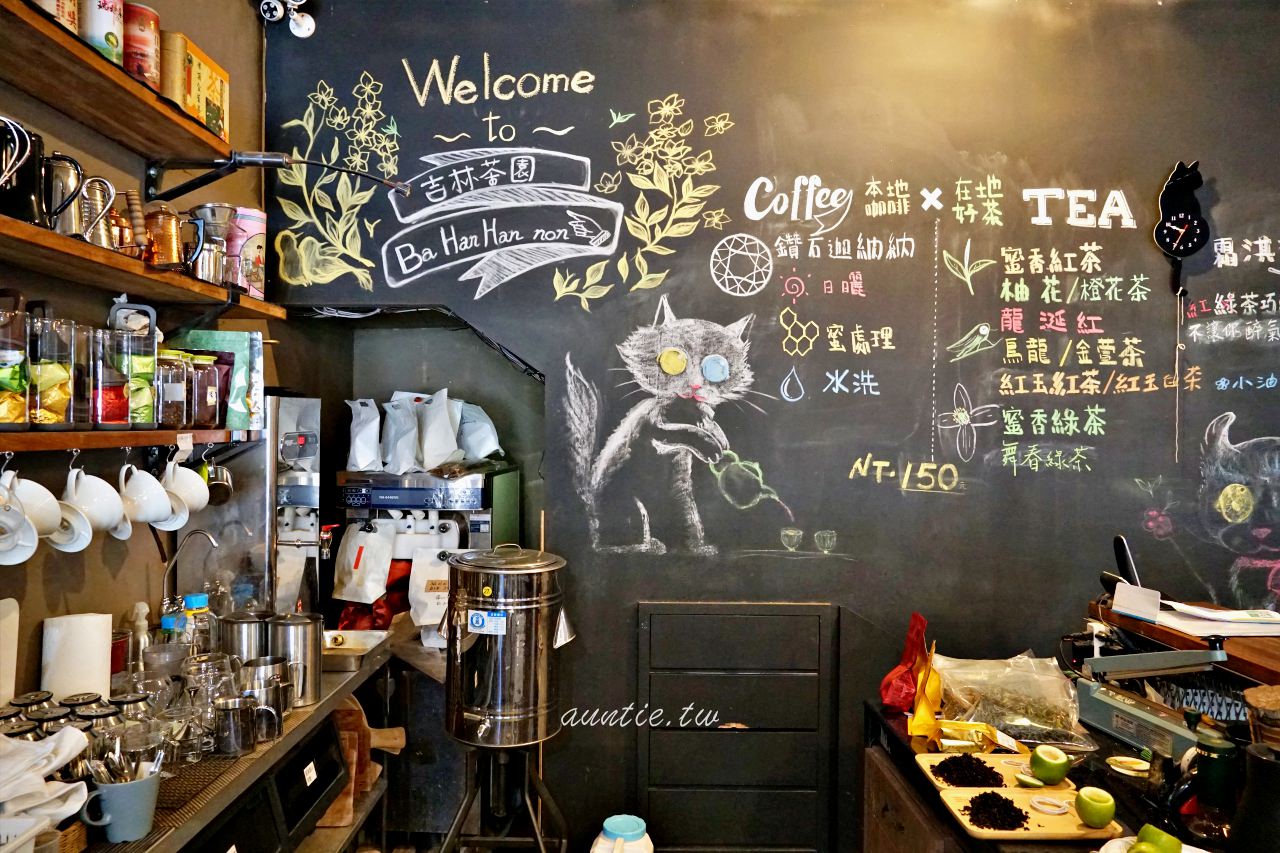 Welcome
to
吉林茶園
Ba Han Han non
Coffee 本地咖啡 × 在地好茶 TEA
鑽石迦納納
日曬
蜜處理
水洗
蜜香紅茶
柚花/橙花茶
龍涎紅
烏龍/金萱茶
紅玉紅茶/紅玉白茶
蜜香綠茶
舞春綠茶
NT-150
霜淇
紅綠茶巧
不讓你醉氣
小油
auntie.tw